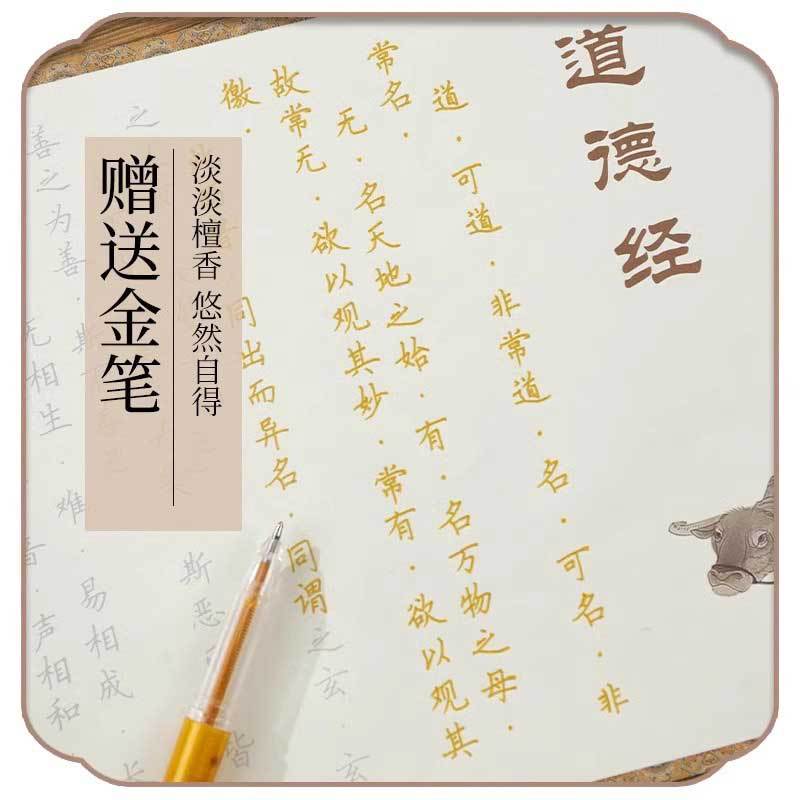 道德经
道·可道·非常道·名·可名·非
常名·无·名天地之始·有·名万物之母·
故常无·欲以观其妙·常有·欲以观其
徼·
同出而异名·同谓之玄·玄
之
斯恶
皆
善之为善·斯
无相生·难·易相成·长
音·声相和·
赠送金笔
淡淡檀香 悠然自得